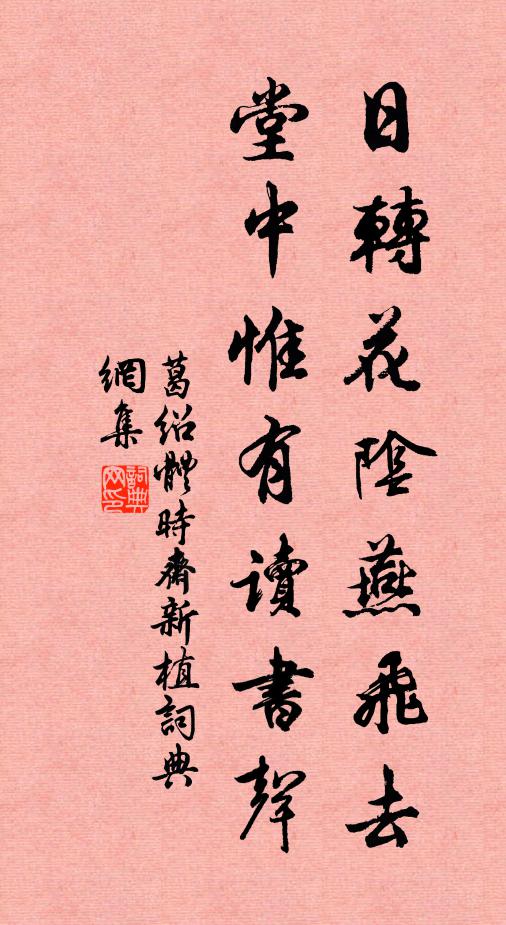 日轉花陰燕飛去
堂中惟有讀書聲
葛紹體時齋新植詞典
網集
詞典
網印